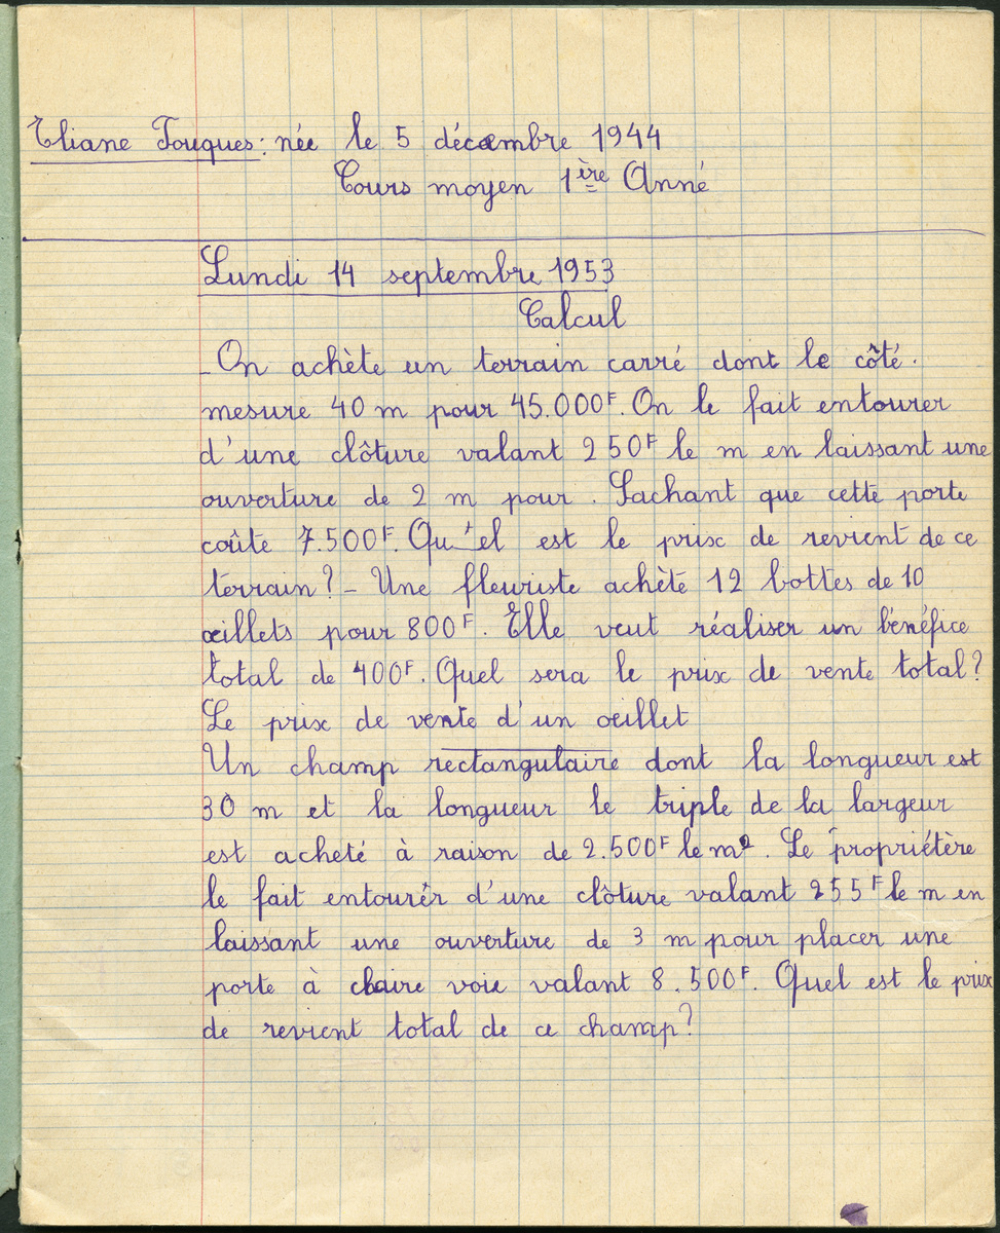 Eliane Fouques : née le 5 décembre 1944
Cours moyen 1ère Anné
Lundi 14 septembre 1953
Calcul
- On achète un terrain carré dont le côté.
mesure 40 m pour 45.000F. On le fait entourer
d'une clôture valant 250F le m en laissant une
ouverture de 2 m pour. Sachant que cette porte
coûte 7.500F. Qu'el est le prix de revient de ce
terrain? - Une fleuriste achète 12 bottes de 10
œillets pour 800F. Elle veut réaliser un bénéfice
total de 400F. Quel sera le prix de vente total?
Le prix de vente d'un œillet
Un champ rectangulaire dont la longueur est
30 m et la longueur le triple de la largeur
est acheté à raison de 2.500F le m². Le propriétère
le fait entourér d'une clôture valant 255F le m en
laissant une ouverture de 3 m pour placer une
porte à claire voie valant 8.500F. Quel est le prix
de revient total de ce champ?